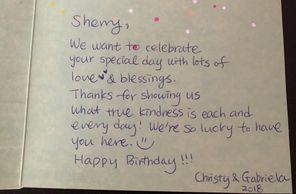 Sherry,
We want to celebrate
your special day with lots of
love & blessings.
Thanks for showing us
what true kindness is each and
every day! We're so lucky to have
you here.
Happy Birthday!!!
Christy & Gabriela
2018